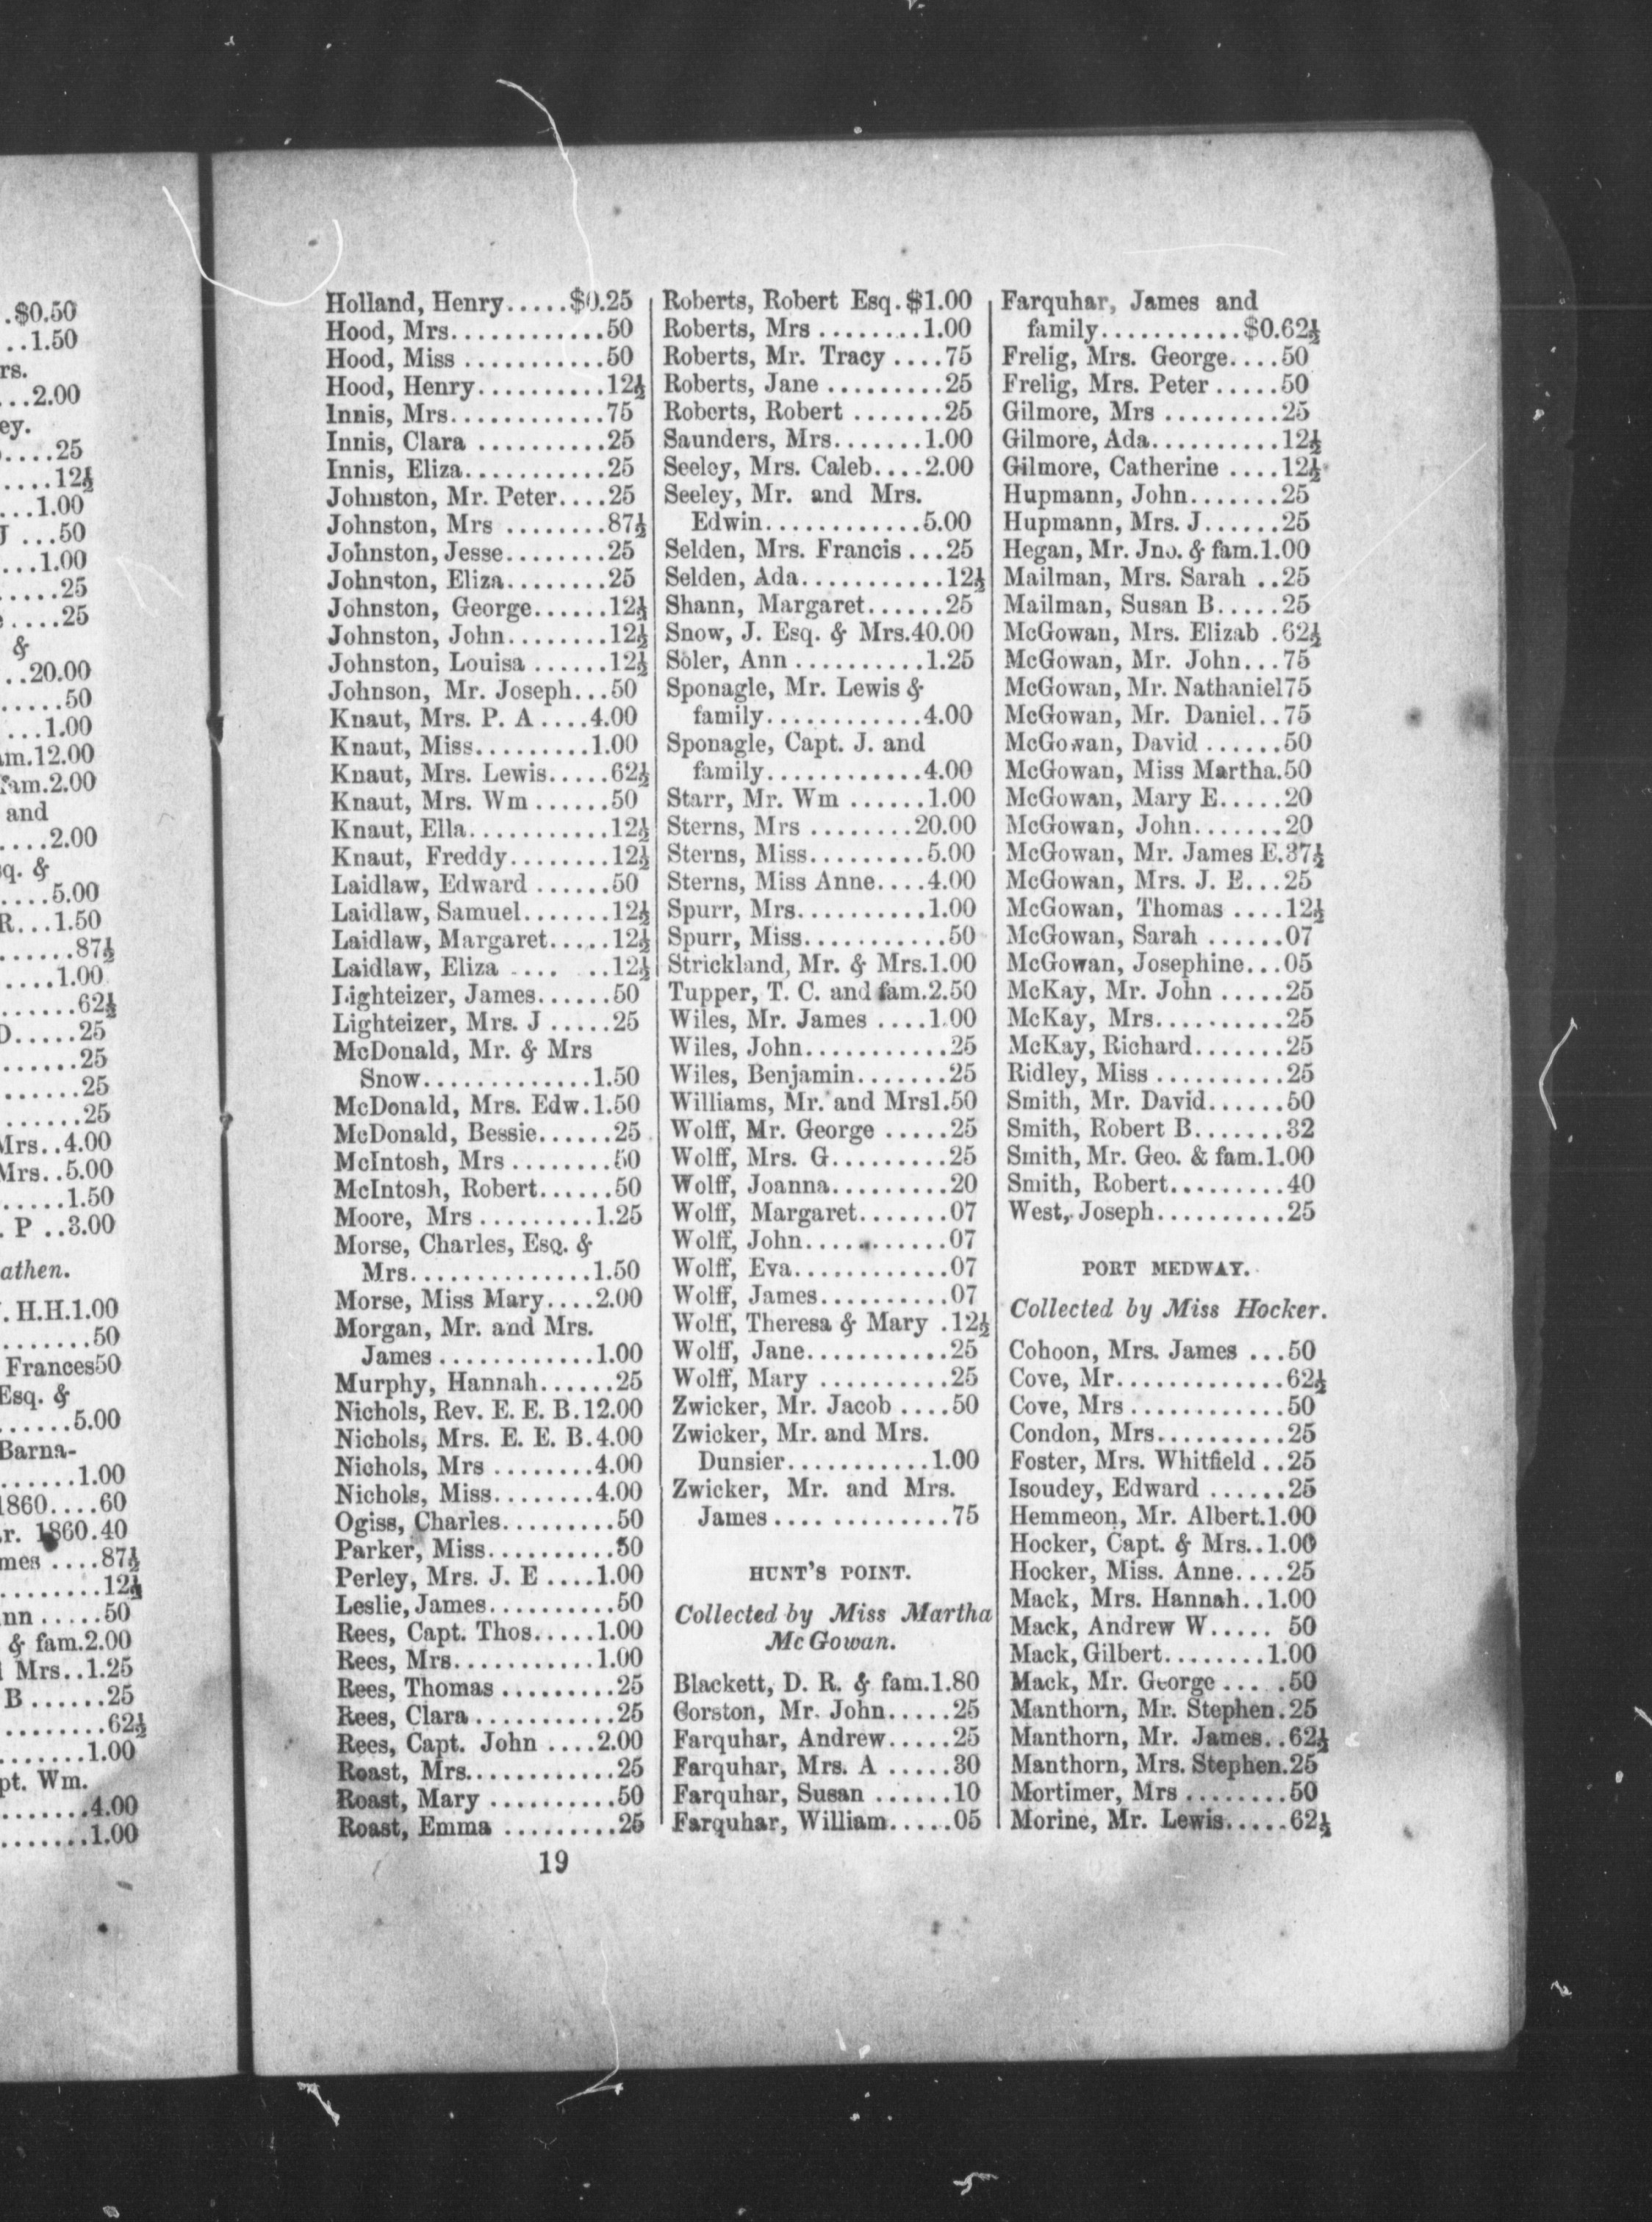 .$0.50
..1.50
rs.
...2.00
ey.
....25
....12½
...1.00
J ...50
...1.00
.....25
....25
&
..20.00
.....50
...1.00
am.12.00
fam.2.00
and
....2.00
sq. &
....5.00
R...1.50
......87½
....1.00
......62½
D.....25
......25
......25
......25
Mrs..4.00
Mrs..5.00
.....1.50
. P ..3.00
athen.
. H.H.1.00
.......50
Frances50
Esq. &
......5.00
Barna-
......1.00
1860....60
r. 1860.40
mes ....87½
........12½
nn .....50
& fam.2.00
Mrs..1.25
B ......25
........62½
.......1.00
pt. Wm.
.......4.00
.......1.00
Holland, Henry.....$0.25
Hood, Mrs............50
Hood, Miss ...........50
Hood, Henry..........12½
Innis, Mrs............75
Innis, Clara ..........25
Innis, Eliza...........25
Johnston, Mr. Peter....25
Johnston, Mrs ........87½
Johnston, Jesse........25
Johnston, Eliza........25
Johnston, George......12½
Johnston, John........12½
Johnston, Louisa ......12½
Johnson, Mr. Joseph...50
Knaut, Mrs. P. A ....4.00
Knaut, Miss.........1.00
Knaut, Mrs. Lewis.....62½
Knaut, Mrs. Wm ......50
Knaut, Ella...........12½
Knaut, Freddy........12½
Laidlaw, Edward ......50
Laidlaw, Samuel.......12½
Laidlaw, Margaret.....12½
Laidlaw, Eliza .... ..12½
Lighteizer, James......50
Lighteizer, Mrs. J .....25
McDonald, Mr. & Mrs
Snow.............1.50
McDonald, Mrs. Edw.1.50
McDonald, Bessie......25
McIntosh, Mrs ........50
McIntosh, Robert......50
Moore, Mrs .........1.25
Morse, Charles, Esq. &
Mrs..............1.50
Morse, Miss Mary....2.00
Morgan, Mr. and Mrs.
James ............1.00
Murphy, Hannah......25
Nichols, Rev. E. E. B.12.00
Nichols, Mrs. E. E. B.4.00
Nichols, Mrs ........4.00
Nichols, Miss........4.00
Ogiss, Charles.........50
Parker, Miss..........50
Perley, Mrs. J. E ....1.00
Leslie, James..........50
Rees, Capt. Thos.....1.00
Rees, Mrs...........1.00
Rees, Thomas .........25
Rees, Clara ...........25
Rees, Capt. John ....2.00
Roast, Mrs............25
Roast, Mary ..........50
Roast, Emma .........25
Roberts, Robert Esq.$1.00
Roberts, Mrs ........1.00
Roberts, Mr. Tracy ....75
Roberts, Jane .........25
Roberts, Robert .......25
Saunders, Mrs.......1.00
Seeley, Mrs. Caleb....2.00
Seeley, Mr. and Mrs.
Edwin............5.00
Selden, Mrs. Francis ...25
Selden, Ada...........12½
Shann, Margaret......25
Snow, J. Esq. & Mrs.40.00
Soler, Ann ..........1.25
Sponagle, Mr. Lewis &
family............4.00
Sponagle, Capt. J. and
family............4.00
Starr, Mr. Wm ......1.00
Sterns, Mrs ........20.00
Sterns, Miss.........5.00
Sterns, Miss Anne....4.00
Spurr, Mrs..........1.00
Spurr, Miss...........50
Strickland, Mr. & Mrs.1.00
Tupper, T. C. and fam.2.50
Wiles, Mr. James ....1.00
Wiles, John...........25
Wiles, Benjamin.......25
Williams, Mr. and Mrs1.50
Wolff, Mr. George .....25
Wolff, Mrs. G.........25
Wolff, Joanna.........20
Wolff, Margaret.......07
Wolff, John...........07
Wolff, Eva............07
Wolff, James..........07
Wolff, Theresa & Mary .12½
Wolff, Jane...........25
Wolff, Mary ..........25
Zwicker, Mr. Jacob ....50
Zwicker, Mr. and Mrs.
Dunsier...........1.00
Zwicker, Mr. and Mrs.
James .... ............75
HUNT'S POINT.
Collected by Miss Martha
McGowan.
Blackett, D. R. & fam.1.80
Corston, Mr. John.....25
Farquhar, Andrew.....25
Farquhar, Mrs. A .....30
Farquhar, Susan ......10
Farquhar, William.....05
Farquhar, James and
family...........$0.62½
Frelig, Mrs. George....50
Frelig, Mrs. Peter .....50
Gilmore, Mrs .........25
Gilmore, Ada..........12½
Gilmore, Catherine ....12½
Hupmann, John.......25
Hupmann, Mrs. J......25
Hegan, Mr. Jno. & fam.1.00
Mailman, Mrs. Sarah ..25
Mailman, Susan B.....25
McGowan, Mrs. Elizab .62½
McGowan, Mr. John...75
McGowan, Mr. Nathaniel75
McGowan, Mr. Daniel..75
McGowan, David ......50
McGowan, Miss Martha.50
McGowan, Mary E.....20
McGowan, John.......20
McGowan, Mr. James E.37½
McGowan, Mrs. J. E...25
McGowan, Thomas ....12½
McGowan, Sarah ......07
McGowan, Josephine...05
McKay, Mr. John .....25
McKay, Mrs..........25
McKay, Richard.......25
Ridley, Miss ..........25
Smith, Mr. David......50
Smith, Robert B.......32
Smith, Mr. Geo. & fam.1.00
Smith, Robert.........40
West, Joseph..........25
PORT MEDWAY.
Collected by Miss Hocker.
Cohoon, Mrs. James ...50
Cove, Mr.............62½
Cove, Mrs ............50
Condon, Mrs..........25
Foster, Mrs. Whitfield ..25
Isoudey, Edward ......25
Hemmeon, Mr. Albert.1.00
Hocker, Capt. & Mrs..1.00
Hocker, Miss. Anne....25
Mack, Mrs. Hannah..1.00
Mack, Andrew W..... 50
Mack, Gilbert........1.00
Mack, Mr. George ... .50
Manthorn, Mr. Stephen.25
Manthorn, Mr. James..62½
Manthorn, Mrs. Stephen.25
Mortimer, Mrs ........50
Morine, Mr. Lewis.....62½
19